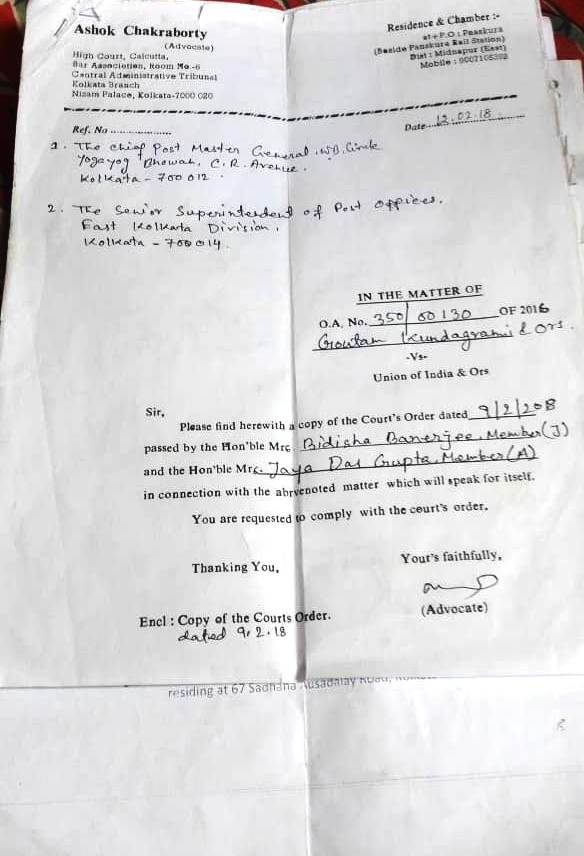 Ashok Chakraborty
(Advocate)
High Court, Calcutta,
Bar Association, Room No.-6
Central Administrative Tribunal
Kolkata Branch
Nizam Palace, Kolkata-7000 020
Residence & Chamber :-
at+P.O : Panskura
(Beside Panskura Rail Station)
Dist : Midnapur (East)
Mobile :
Ref. No ....................
Date....12.02.18.
1. The Chief Post Master General. W.B. Circle
Yogayog Bhowan, C.R. Avenue.
Kolkata - 700 012.
2. The Senior Superintendent of Post Offices.
East Kolkata Division.
Kolkata - 700 014.
IN THE MATTER OF
O.A. No. 350/00130 OF 2016
Goutam Kundagrami & Ors.
-Vs-
Union of India & Ors
Sir,
Please find herewith a copy of the Court's Order dated 9/2/2018
passed by the Hon'ble Mrs. Bidisha Banerjee, Member(J)
and the Hon'ble Mrs. Jaya Das Gupta, Member(A)
in connection with the abrvenoted matter which will speak for itself.
You are requested to comply with the court's order.
Thanking You,
Your's faithfully,
(Advocate)
Encl : Copy of the Courts Order.
dated 9.2.18
residing at 67 Sadhana Ausadalay Road,